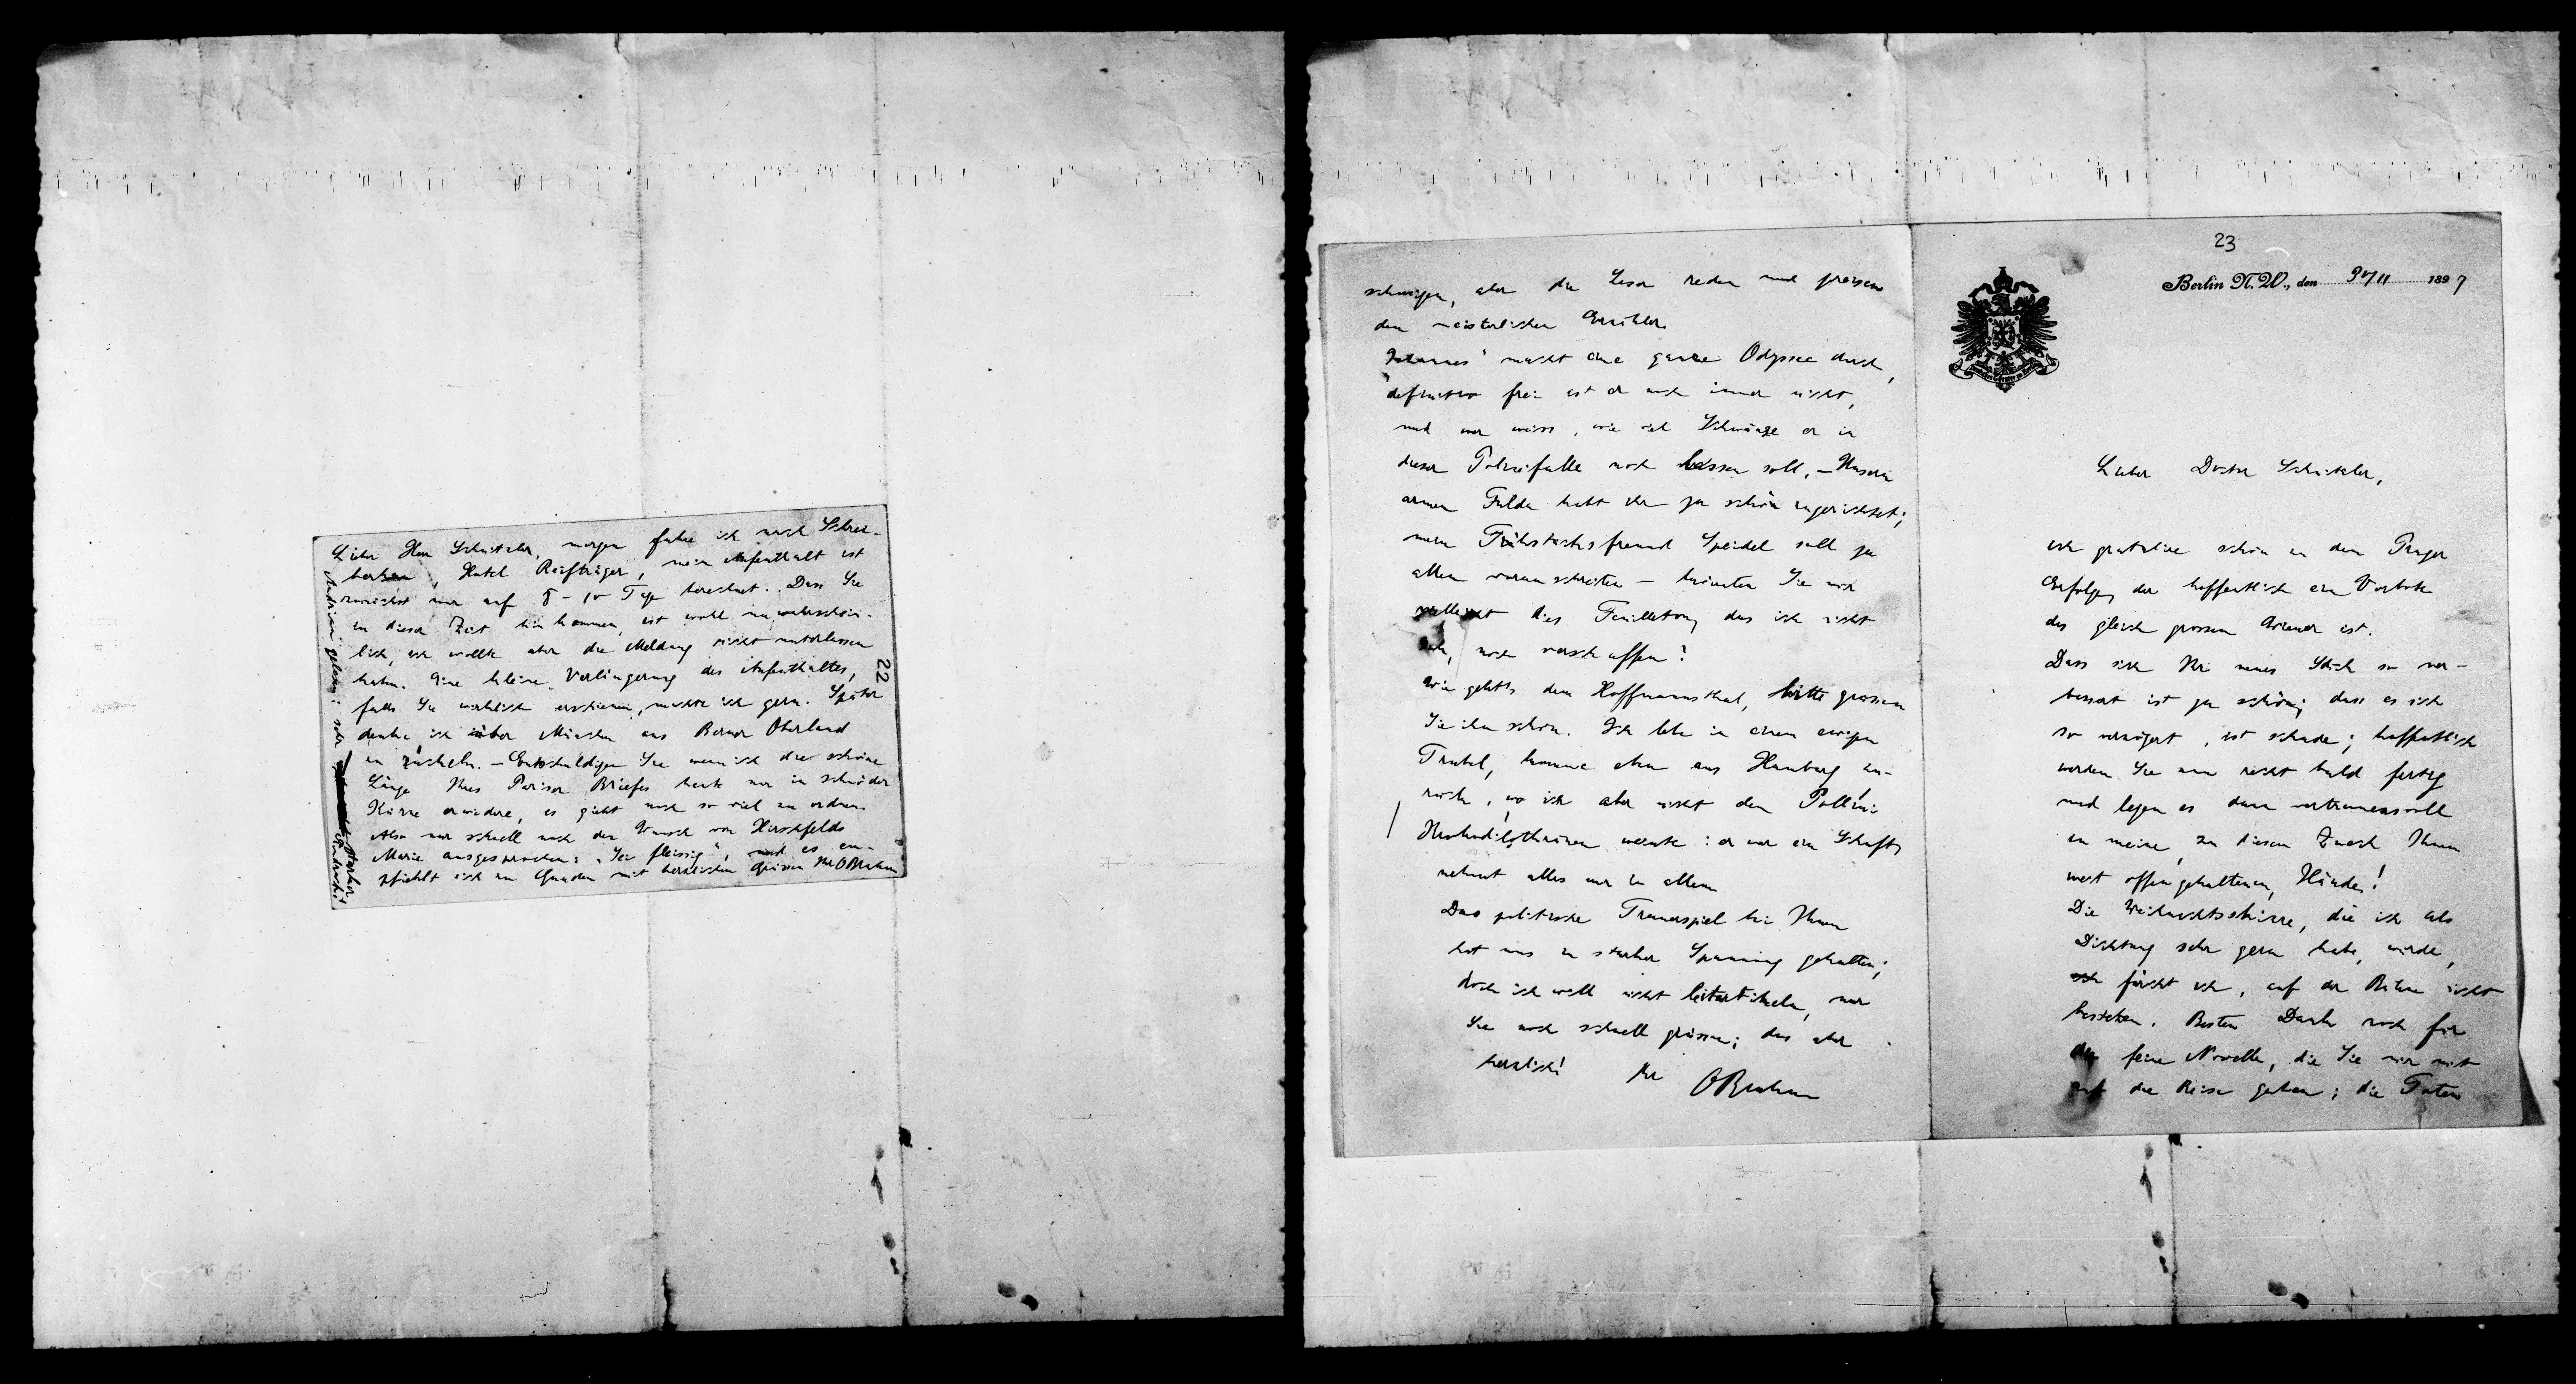 Lieber Herr Schnitzler, morgen fahre ich nach Schrei-
berhau, Hotel Reifträger, mein Aufenthalt ist
zunächst nur auf 8 - 10 Tage berechnet. Dass Sie
in dieser Zeit hin kommen, ist wohl unwahrschein-
lich, ich wollte aber die Meldung nicht unterlassen
haben. Eine kleine Verlängerung des Aufenthaltes,
falls Sie wirklich erschienen, machte ich gern. Später
denke ich über München ins Berner Oberland
zu . – Entschuldigen Sie wenn ich die schöne
Länge Ihres Pariser Briefes heut nur in schnöder
Kürze erwidere, es giebt noch so viel zu ordnen.
Also nur schnell noch den Wunsch von Hirschfelds
Marie ausgesprochen: „Sei fleissig“, und es em-
pfiehlt sich zu Gnaden mit herzlichen Grüssen Ihr OBrahm
Andrian gelesen: sehr starker
22
23
Berlin N.W., den 30/11 1897
Lieber Doctor Schnitzler,
ich gratulire schön zu dem Prager
Erfolge, der hoffentlich ein Vorbote
des gleich grossen Wiener ist.
Dass sich Ihr neues Stück so ver-
bessert ist ja schön; dass es sich
so verzögert, ist schade; hoffentlich
werden Sie nun recht bald fertig
und legen es dann vertrauensvoll
in meine, zu diesem Zweck Ihnen
weit offen gehaltenen, Hände!
Die Weihnachtsskizze, die ich als
Dichtung sehr gern habe, würde,
fürcht ich, auf der Bühne nicht
bestehen. Besten Dank noch für
die feine Novelle, die Sie mir mit
auf die Reise gaben; die Toten
schweigen, aber die Leser reden und preisen
den meisterlichen Erzähler.
„Johannes“ macht eine ganze Odyssee durch,
definitiv frei ist er noch immer nicht,
und wer weiss, wie viel Schwänze er in
dieser Polizeifalle noch lassen soll. – Unsern
armen Fulda habt Ihr ja schön zugerichtet;
mein Frühstücksfreund Speidel soll ja
allen voran schreiten – könnten Sie mir
vielleicht dies Feuilleton, das ich nicht
sah, noch verschaffen?
Wie geht's dem Hoffmannsthal, bitte grüssen
Sie ihn schön. Ich lebe in einem ewigen
Trubel, komme eben aus Hamburg zu-
rück, wo ich aber nicht dem Pollini
weinte: er war ein Schuft,
nehmt alles nur in allem.
Das politische Trauerspiel bei Ihnen
hat uns in starker Spannung gehalten;
doch ich will nicht leitartikeln, nur
Sie noch schnell grüssen; das aber
herzlich!
Ihr OBrahm